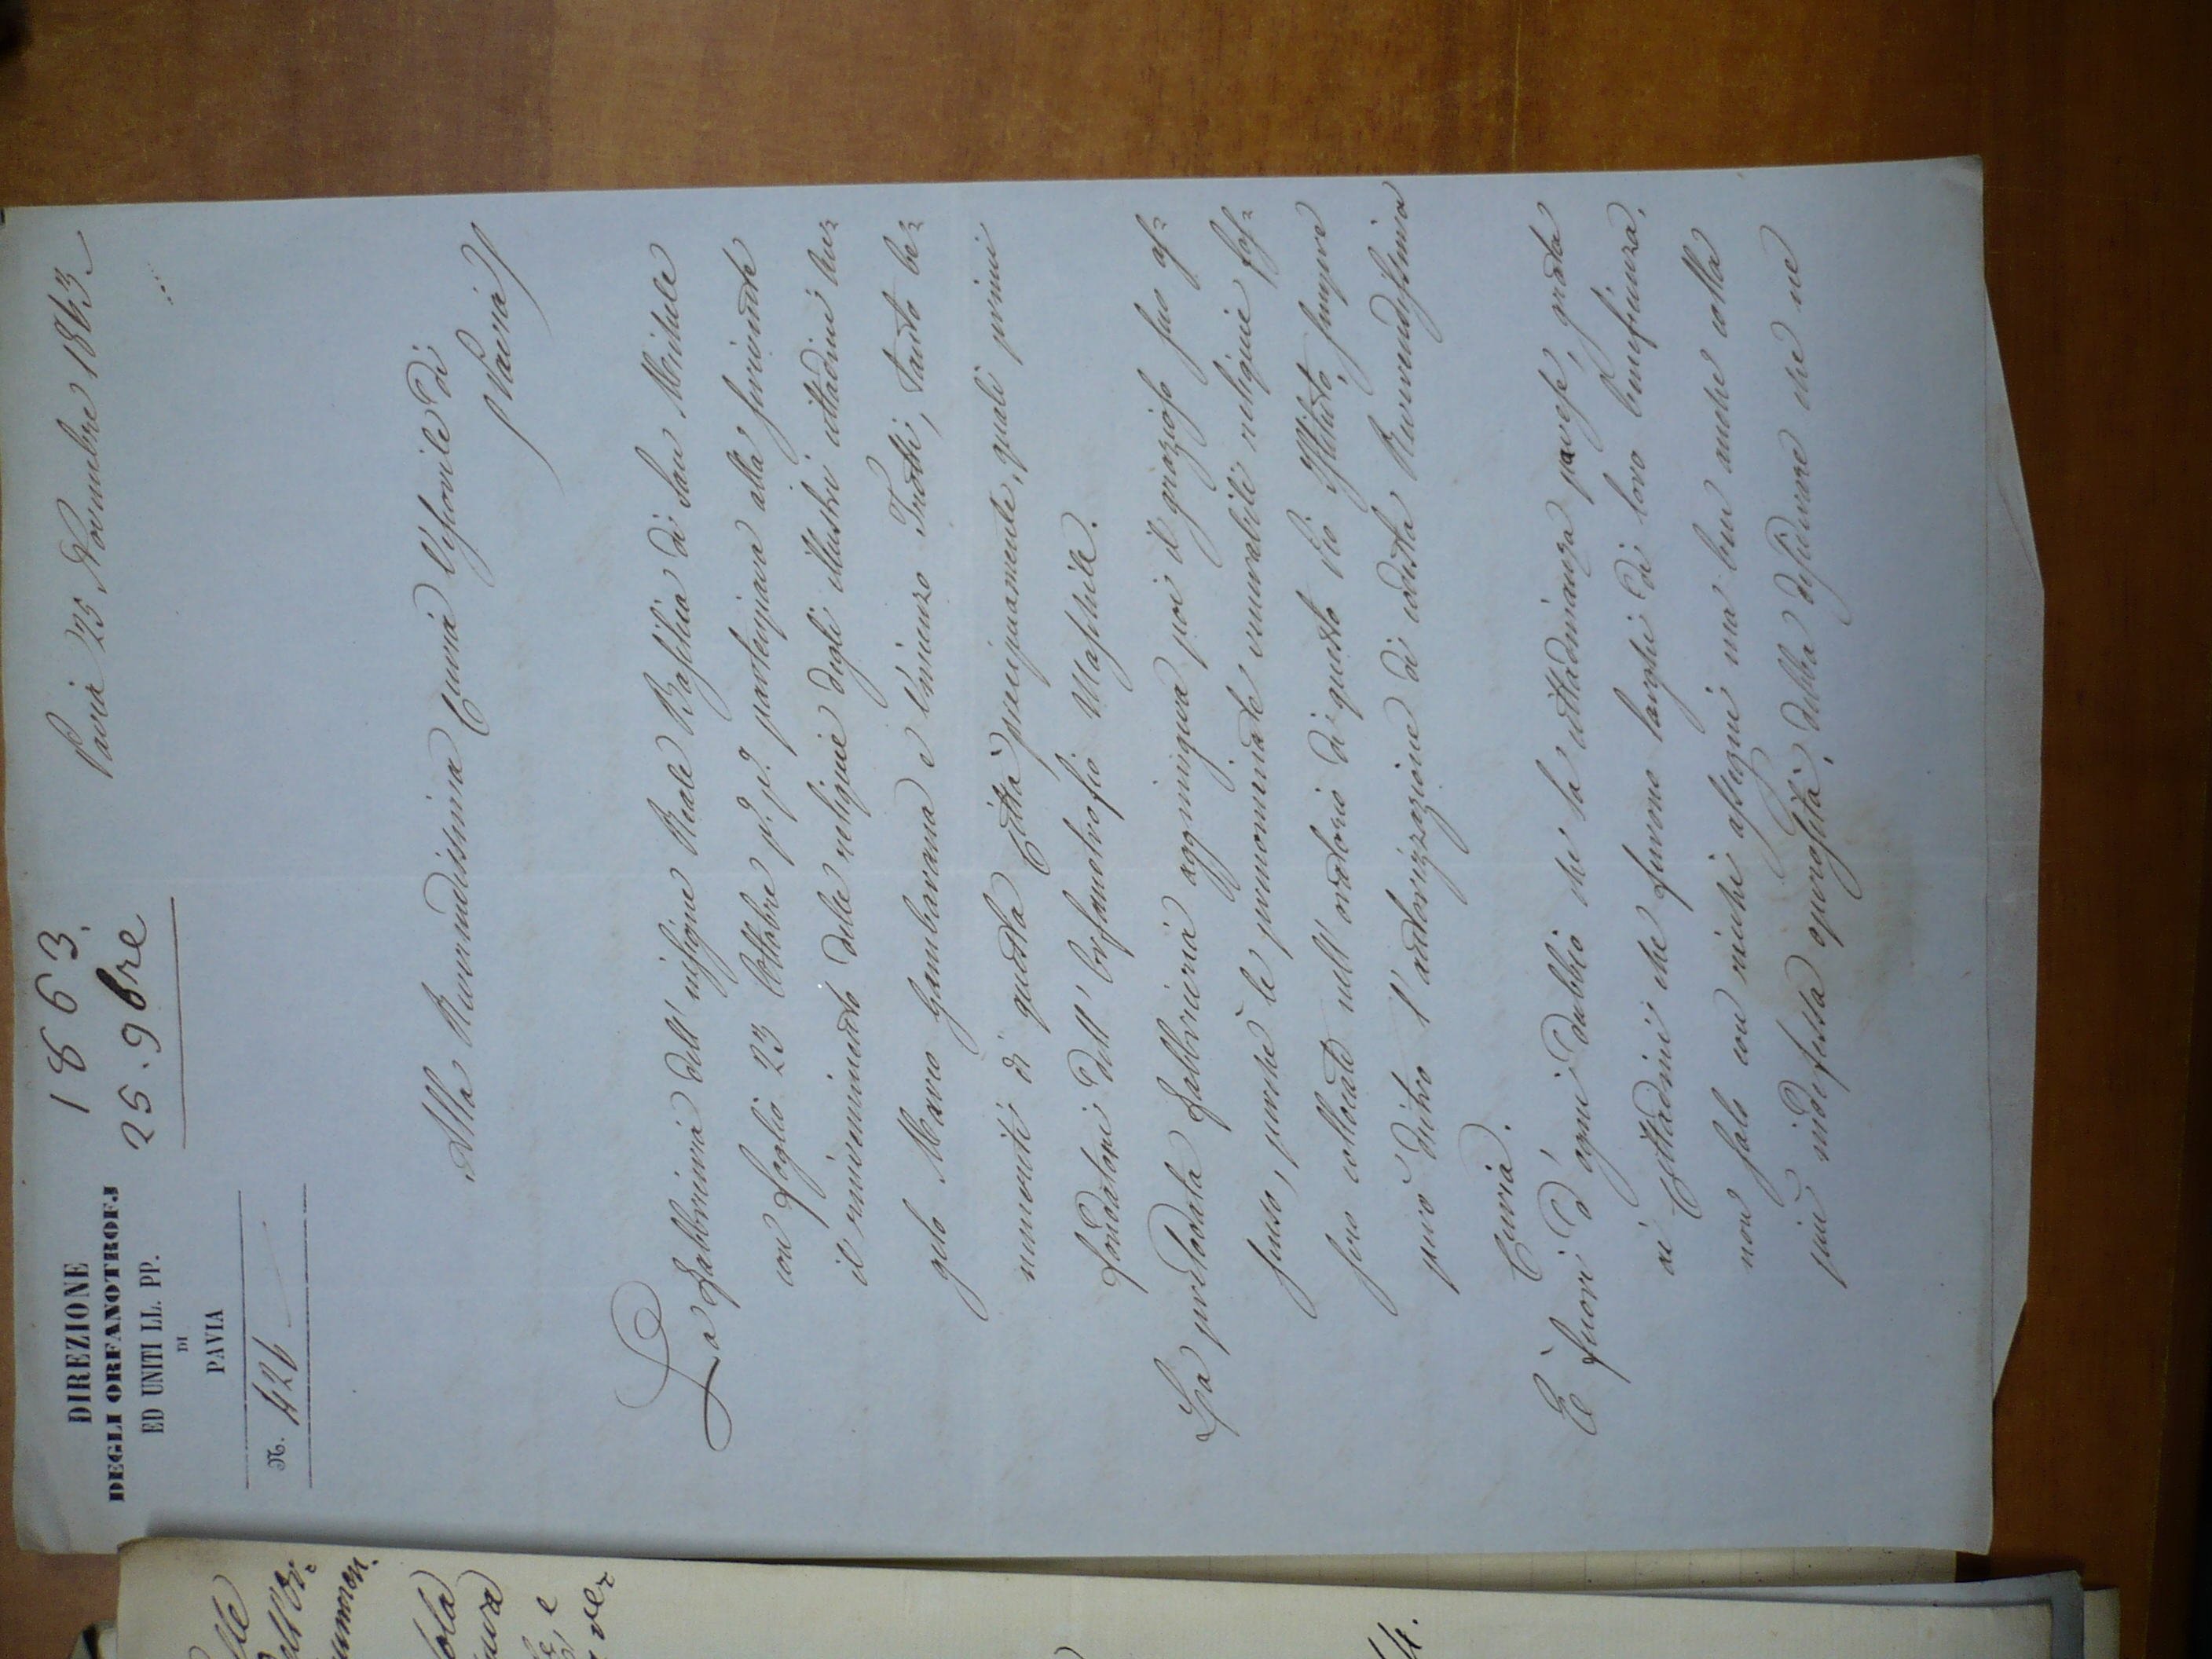 DIREZIONE
DEGLI ORFANOTROFJ
ED UNITI LL. PP.
DI
PAVIA
N. 426
1863.
25. 9bre
Pavia 25 Novembre 1863.
Alla Reverendissima Curia Vescovile di
Pavia
La Fabbriceria dell' insigne Reale Basilica di San Michele
con foglio 23 Ottobre p.º p.º partecipava alla scrivente
il rinvenimento delle reliquie degli illustri cittadini An=
gelo Marco Gambarana e Vincenzo Trotti, tanto be=
nemeriti di questa Città principalmente, quali primi
fondatori dell' Orfanotrofio Maschile.
La prelodata Fabbriceria aggiungeva poi il grazioso suo as=
senso, perchè le summenvate venerabili reliquie fos=
sero collocate nell' oratorio di questo Pio Istituto, sempre
però dietro l' autorizzazione di codesta Reverendissima
Curia.
È fuori d' ogni dubbio che la cittadinanza pavese, grata
ai Cittadini che furono larghi di loro beneficenza,
non solo con ricchi assegni ma ben anche colla
più indefessa operosità, debba desiderare che ne